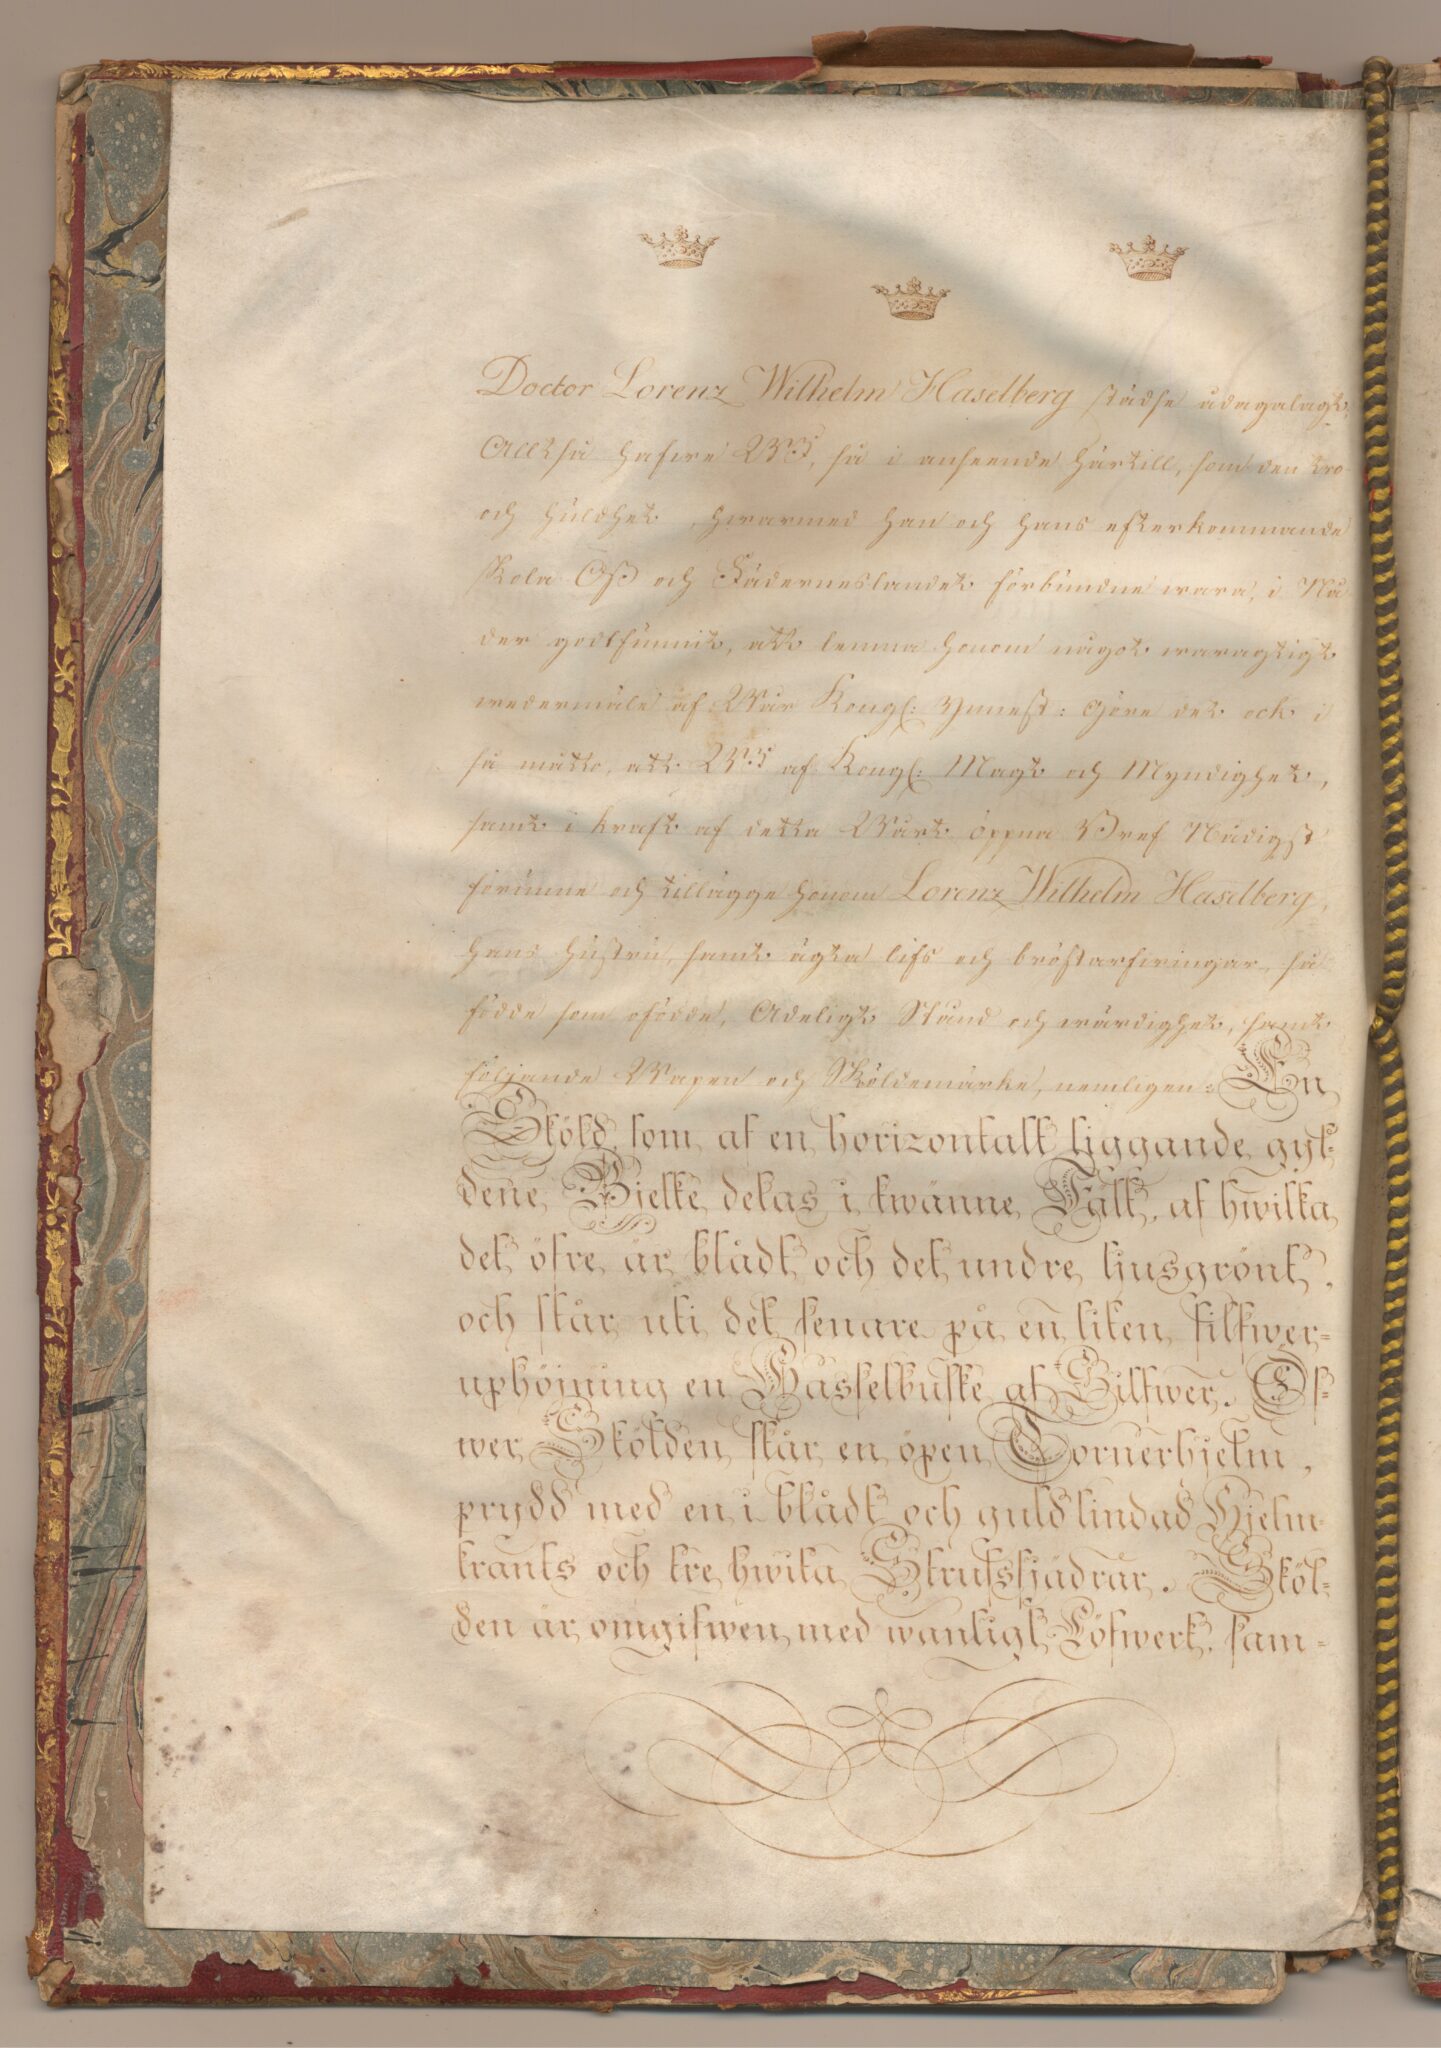 Doctor Lorenz Wilhelm Haselberg städse ådagalagt,
Alltså hafwe Wi, så i anseende härtill, som den tro
och huldhet, hwarmed han och hans efterkommande
skola Oss och Fäderneslandet förbundne wara, i Nå-
der godtfunnit, att lemna honom något waragtigt
wedermäle af Wår Kongl: Ynnest: Gjöre det ock i
så måtto, att Wi af Kongl: Magt och Myndighet,
samt i kraft af detta Wårt öppna Bref Nådigst
förunne och tillägge honom Lorenz Wilhelm Haselberg,
hans hustru, samt ägta lifs och bröstarfwingar, så
födde som ofödde, Adeligt Stånd och wärdighet, samt
följande Wapen och Sköldemärke, nemligen: En
Sköld, som af en horizontalt liggande gyl-
dene Bjelke delas i twänne Fält, af hwilka
det öfre är blådt och det undre ljusgrönt,
och står uti det senare på en liten silfwer-
uphöjning en Hasselbuske af Silfwer. Öf-
wer Skölden står en öpen Tornerhjelm,
prydd med en i blådt och guld lindad Hjelm-
krants och tre hwita Strutsfjädrar. Sköl-
den är omgifwen med wanligt Löfwerk, sam-